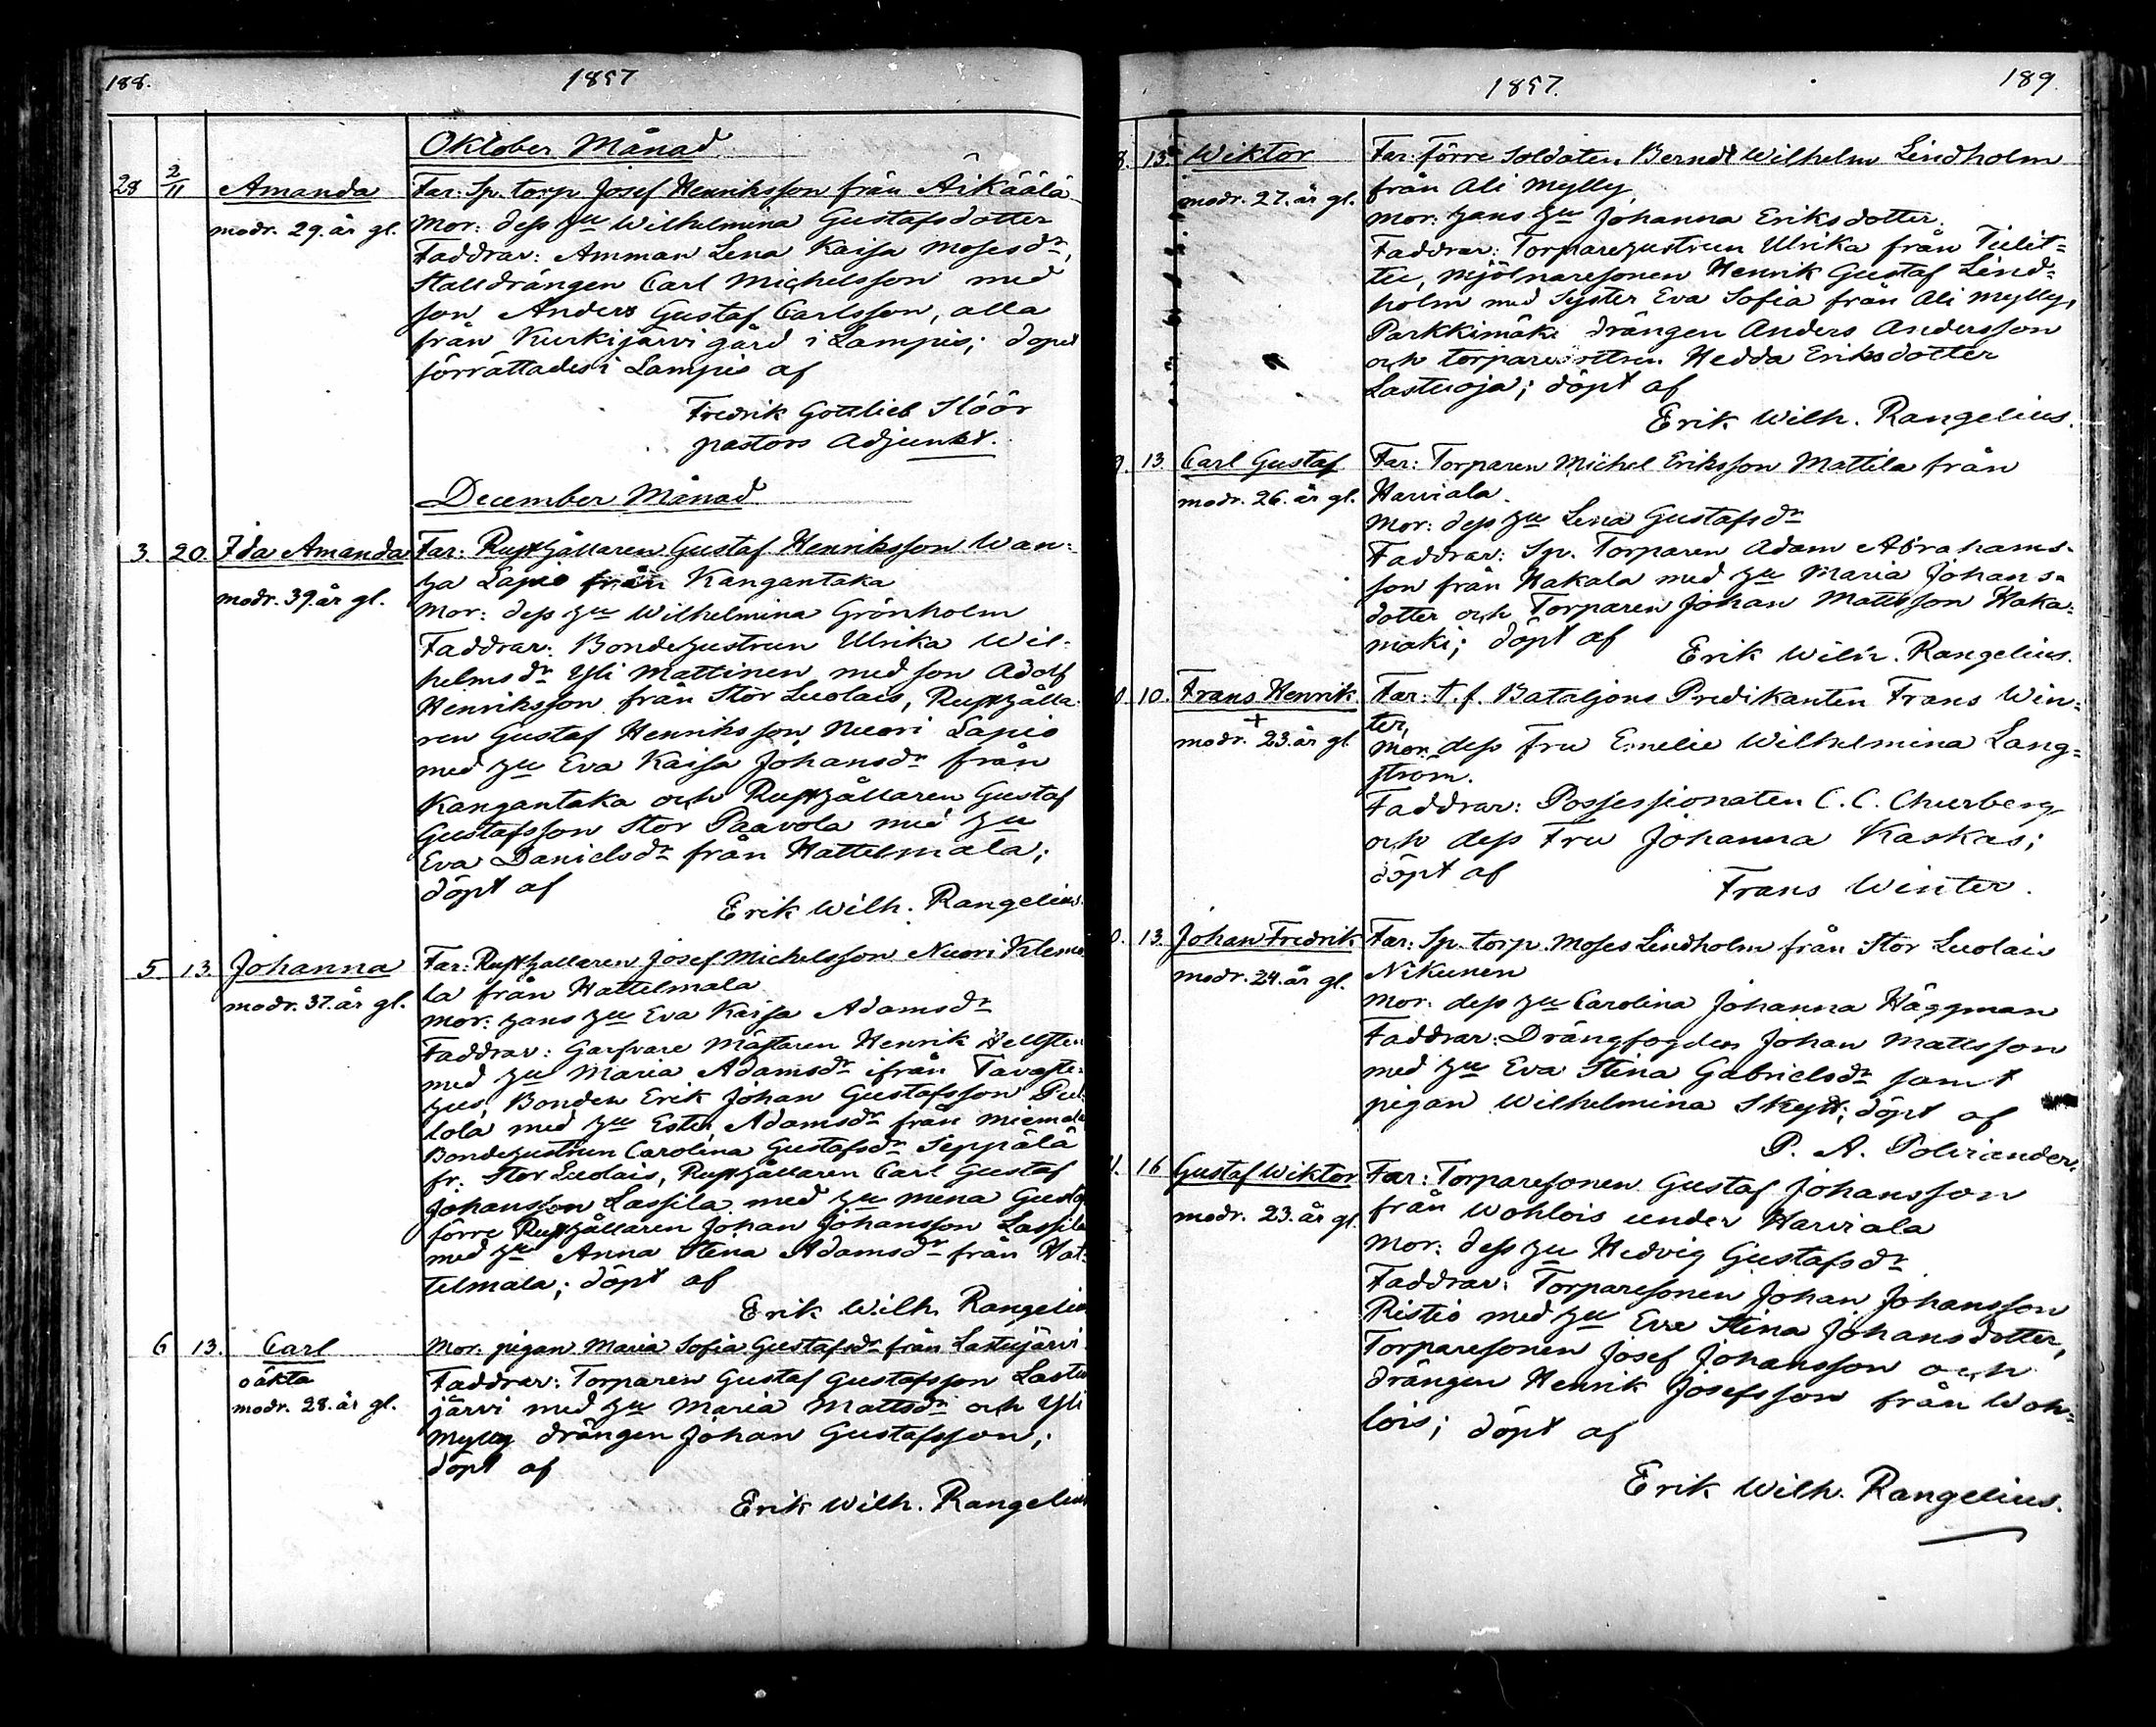 188.
1857
Oktober Månad
28 2/11 Amanda Far: Sp. torp Josef Henriksson från Äikäälä
modr. 29. år gl. Mor: dess hu Wilhelmina Gustafsdotter
Faddrar: Amman Lena Kaisa Mosesdr,
Stalldrängen Carl Michelsson med
son Anders Gustaf Carlsson, alla
från Kurkijärvi gård i Lampis; dopet
förrättades i Lampis af
Fredrik Gottlieb Slöör
pastors Adjunkt.
December Månad
3. 20. Ida Amanda Far: Rusthållaren Gustaf Henriksson Wan-
modr. 39. år gl. ha Lapio från Kangantaka
Mor: dess hu Wilhelmina Grönholm
Faddrar: Bondehustrun Ulrika Wil-
helmsdr Yli Mattinen med son Adolf
Henriksson från Stor Luolais, Rusthålla-
ren Gustaf Henriksson Nuori Lapio
med hu Eva Kaisa Johansdr från
Kangantaka och Rusthållaren Gustaf
Gustafsson Stor Paavola med hu
Eva Danielsdr från Hattelmala;
döpt af
Erik Wilh. Rangelius.
5. 13. Johanna Far: Rusthållaren Josef Michelsson Nuori Klemo
modr. 37. år gl. la från Hattelmala
Mor: hans hu Eva Kaisa Adamsdr
Faddrar: Garfvare Mästaren Henrik Hellsten
med hu Maria Adamsdr ifrån Tavaste-
hus, Bonden Erik Johan Gustafsson
lola med hu Ester Adamsdr från Miemala
Bondehustrun Carolina Gustafsdr Seppälä
fr. Stor Luolais, Rusthållaren Carl Gustaf
Johansson Lassila med hu Mena Gustaf
förre Rusthållaren Johan Johansson Lassila
med hu Anna Stina Adamsdr från Hat-
telmala; döpt af
Erik Wilh. Rangelius
6 13. Carl Mor: pigan Maria Sofia Gustafsdr från Lastujärvi
oäkta Faddrar: Torparen Gustaf Gustafsson Lastu
modr. 28. år gl. järvi med hu Maria Mattsdr och Yli
Mylly drängen Johan Gustafsson;
döpt af
Erik Wilh. Rangelius
1857.
189.
8. 13. Wiktor Far: förre Soldaten Berndt Wilhelm Lindholm
modr. 27. år gl. från Ali Mylly
Mor: hans hu Johanna Eriksdotter.
Faddrar: Torparehustrun Ulrika från Tielit-
tu, Mjölnaresonen Henrik Gustaf Lind-
holm med Syster Eva Sofia från Ali Mylly,
Parkkimäki drängen Anders Andersson
och torparedottren Hedda Eriksdotter
Lastuoja; döpt af
Erik Wilh. Rangelius.
9. 13. Carl Gustaf Far: Torparen Michel Eriksson Mattila från
modr. 26. år gl. Harviala.
Mor: dess hu Lena Gustafsdr
Faddrar: Sp. Torparen Adam Abrahams-
son från Hakala med hu Maria Johans-
dotter och Torparen Johan Mattsson Haka-
mäki; döpt af
Erik Wilh. Rangelius.
0. 10. Frans Henrik Far: t. f. Bataljons Predikanten Frans Win-
+ ter,
modr. 23. år gl. Mor: dess Fru Emelie Wilhelmina Lang-
ström.
Faddrar: Possessionaten C. C. Churberg
och dess Fru Johanna Kaskas;
döpt af
Frans Winter.
0. 13. Johan Fredrik Far: Sp. torp. Moses Lindholm från Stor Luolais
modr. 24. år gl. Nikunen
Mor: dess hu Carolina Johanna Häggman
Faddrar: Drängfogden Johan Mattsson
med hu Eva Stina Gabrielsdr samt
pigan Wilhelmina Skytt; döpt af
P. A. Polviander.
1. 16 Gustaf Wiktor Far: Torparesonen Gustaf Johansson
modr. 23. år gl. från Wohlois under Harviala
Mor: dess hu Hedvig Gustafsdr
Faddrar: Torparesonen Johan Johansson
Ristio med hu Eva Stina Johansdotter,
Torparesonen Josef Johansson och
drängen Henrik Josefsson från Woh-
lois; döpt af
Erik Wilh. Rangelius.